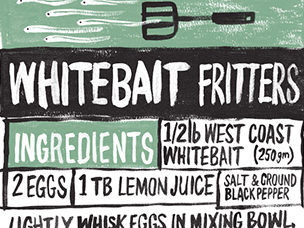 WHITEBAIT FRITTERS
INGREDIENTS
1/2lb WEST COAST
WHITEBAIT (250gm)
2 EGGS
1 TB LEMON JUICE
SALT & GROUND
BLACK PEPPER
LIGHTLY WHISK EGGS IN MIXING BOWL.